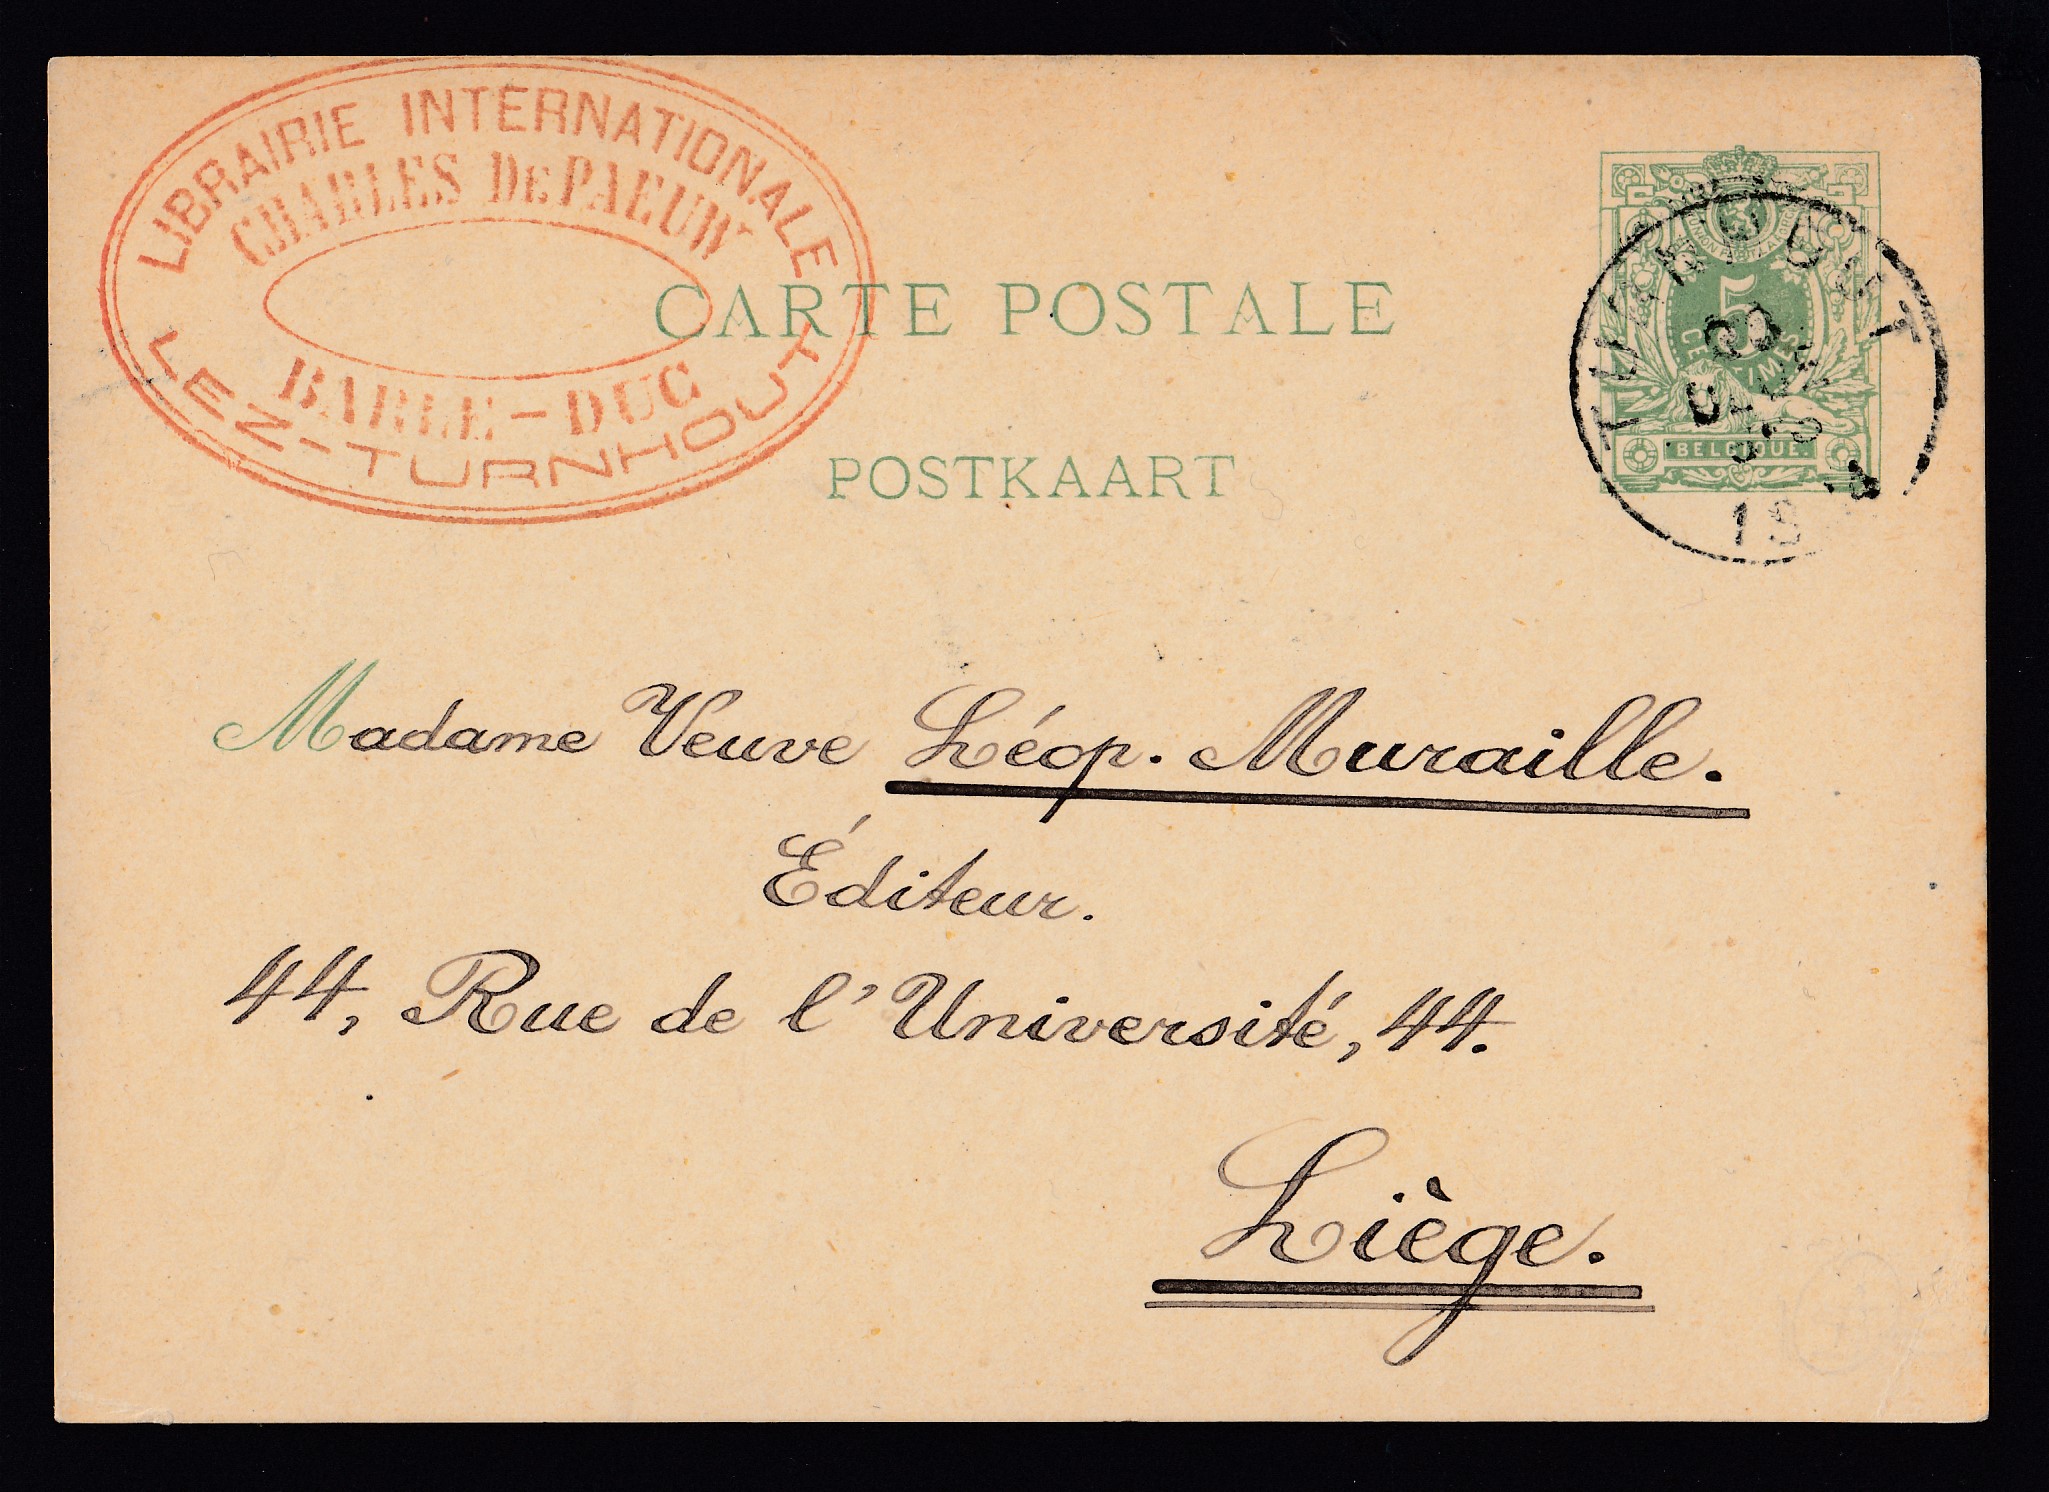 LIBRAIRIE INTERNATIONALE
CHARLES DE PAEUW
BARLE-DUC
LEZ-TURNHOUT
CARTE POSTALE
POSTKAART
UNION
5
CENTIMES
BELGIQUE.
TURNHOUT
Madame Veuve Léop. Muraille.
Éditeur.
44, Rue de l'Université, 44.
Liège.